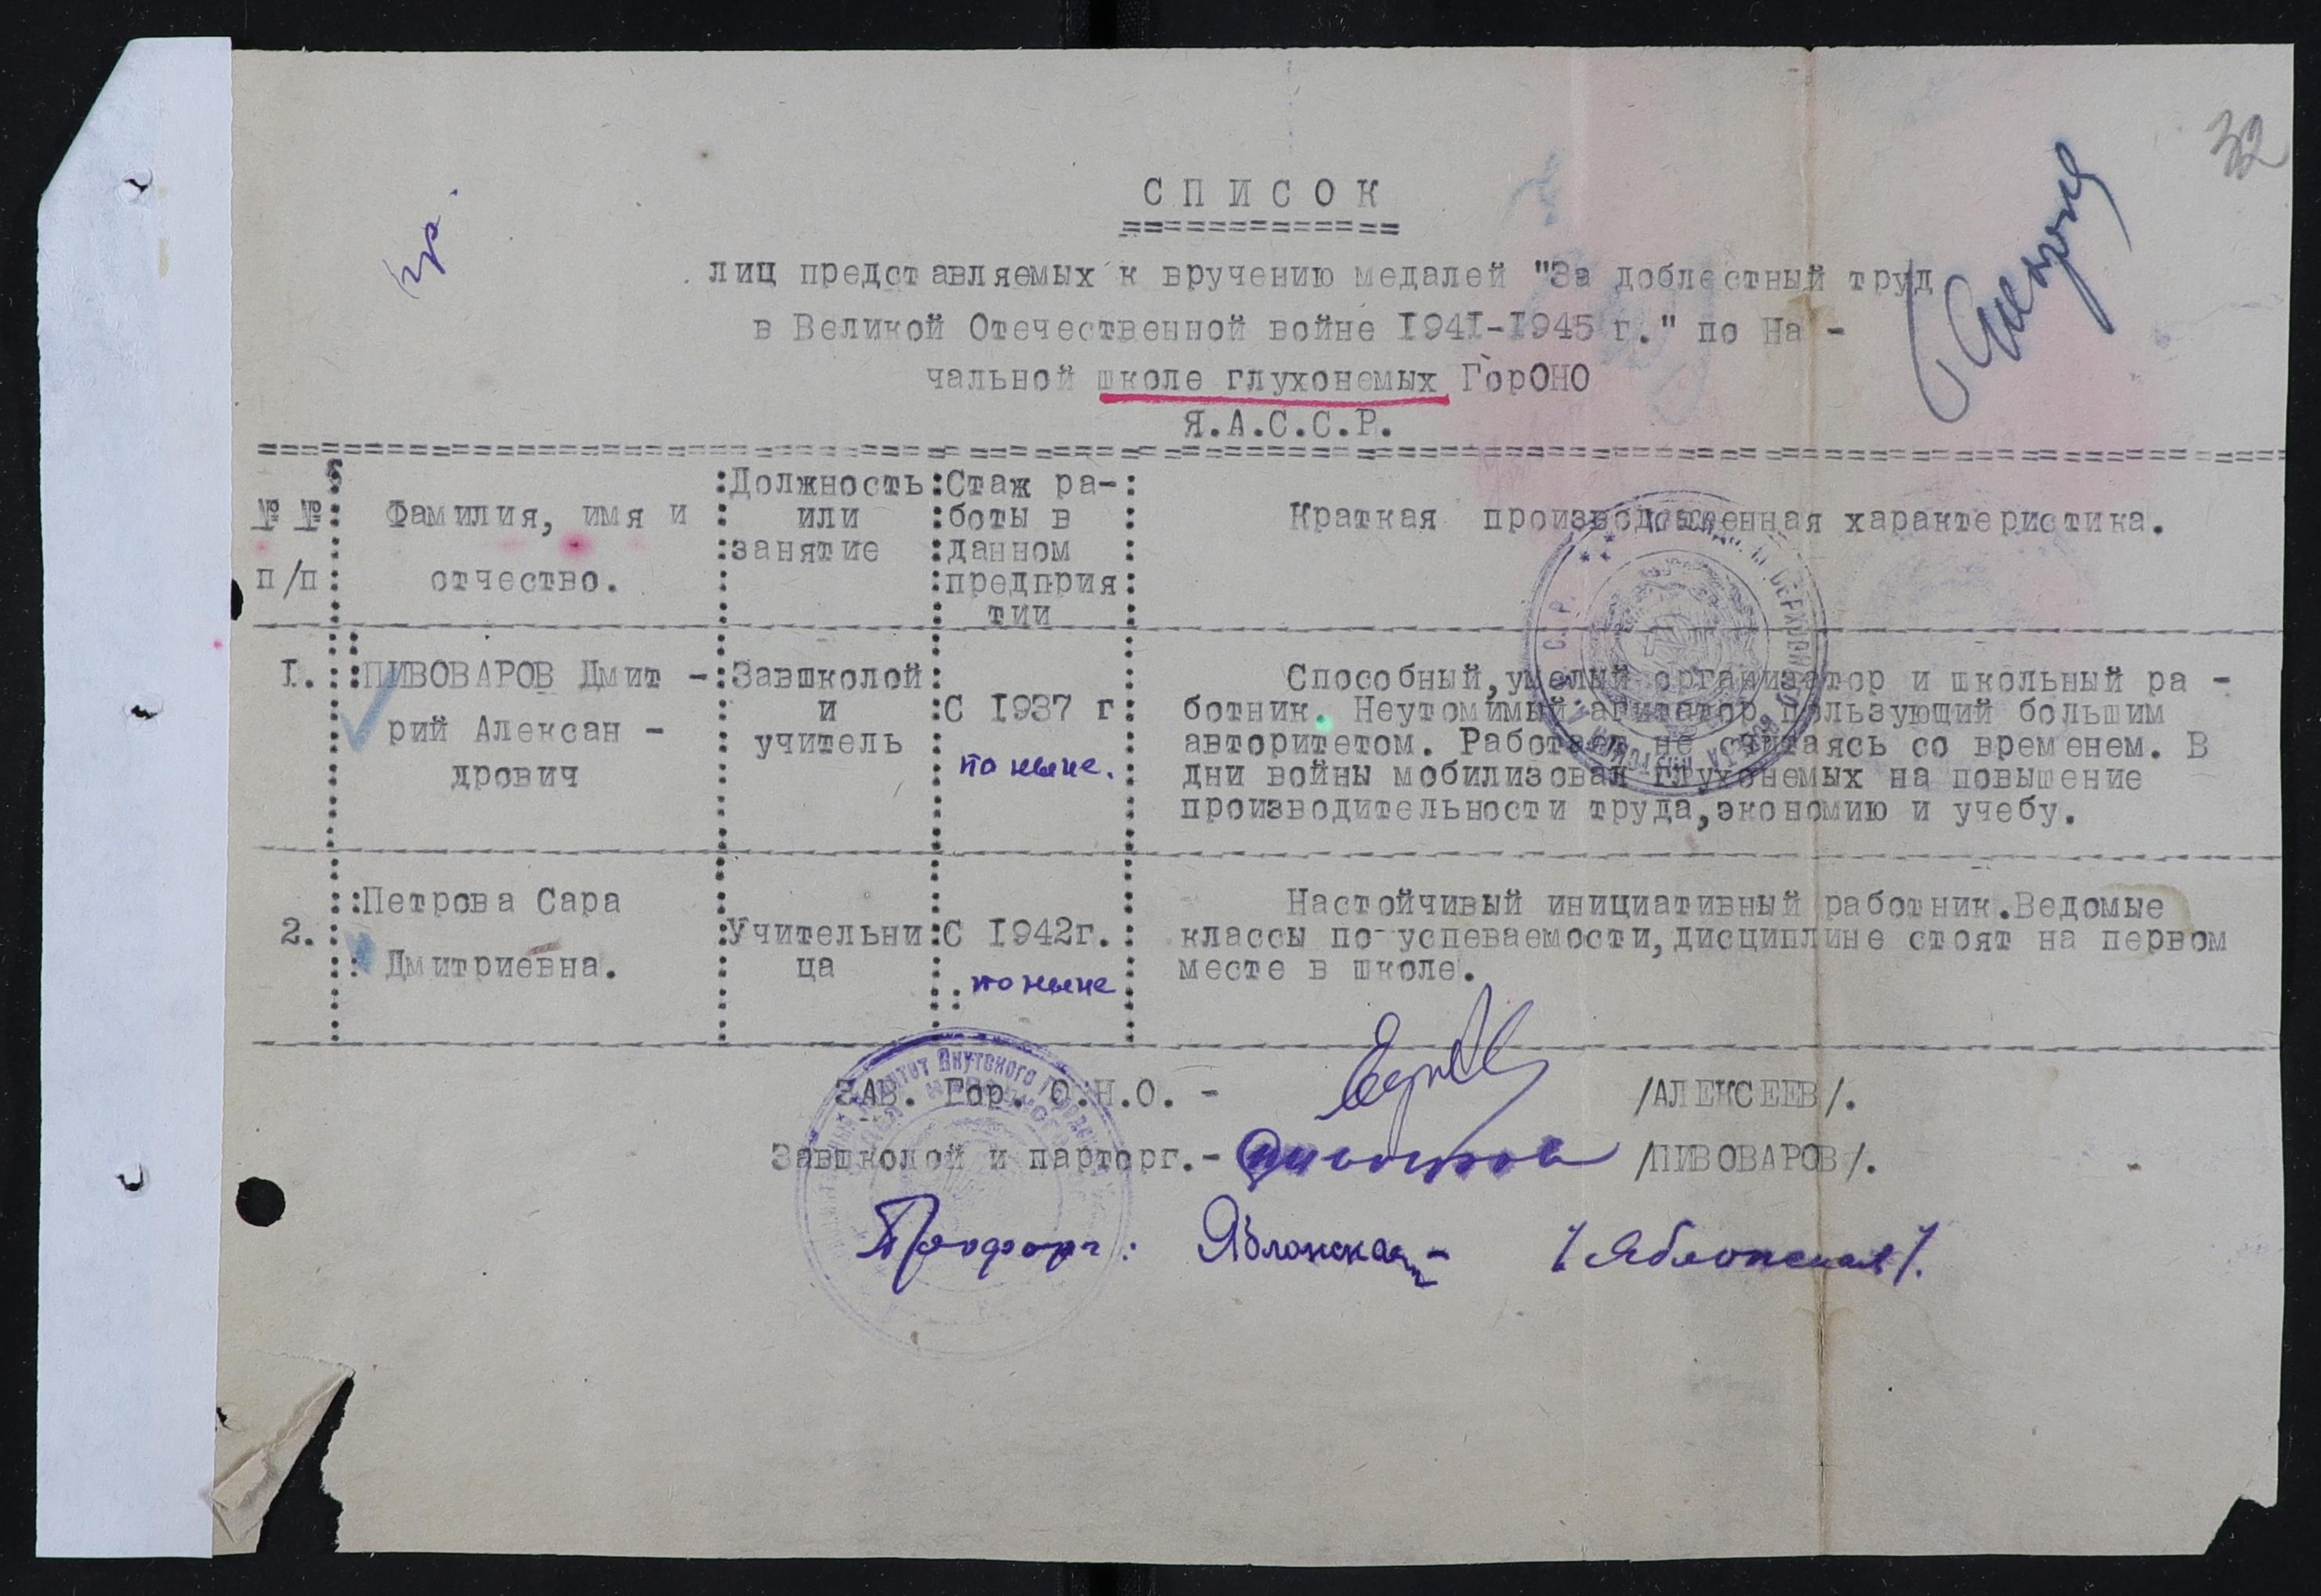 32
пр.
С П И С О К
лиц представляемых к вручению медалей "За доблестный труд
в Великой Отечественной войне 1941-1945 г." по На -
чальной школе глухонемых ГорОНО
Я.А.С.С.Р.
№ №
п/п
Фамилия, имя и
отчество.
Должность
или
занятие
Стаж ра-
боты в
данном
предприя
тии
Краткая производственная характеристика.
I.
ПИВОВАРОВ Дмит -
рий Алексан -
дрович
Завшколой
и
учитель
С 1937 г
по ныне.
Способный,умелый организатор и школьный ра -
ботник. Неутомимый агитатор пользующий большим
авторитетом. Работает не считаясь со временем. В
дни войны мобилизовал глухонемых на повышение
производительности труда,экономию и учебу.
2.
Петрова Сара
Дмитриевна.
Учительни
ца
С 1942г.
по ныне
Настойчивый инициативный работник.Ведомые
классы по успеваемости,дисциплине стоят на первом
месте в школе.
ЗАВ. Гор. О.Н.О. - /АЛЕКСЕЕВ/.
Завшколой и парторг.- /ПИВОВАРОВ/.
Профорг: Яблонская- /Яблонская/.